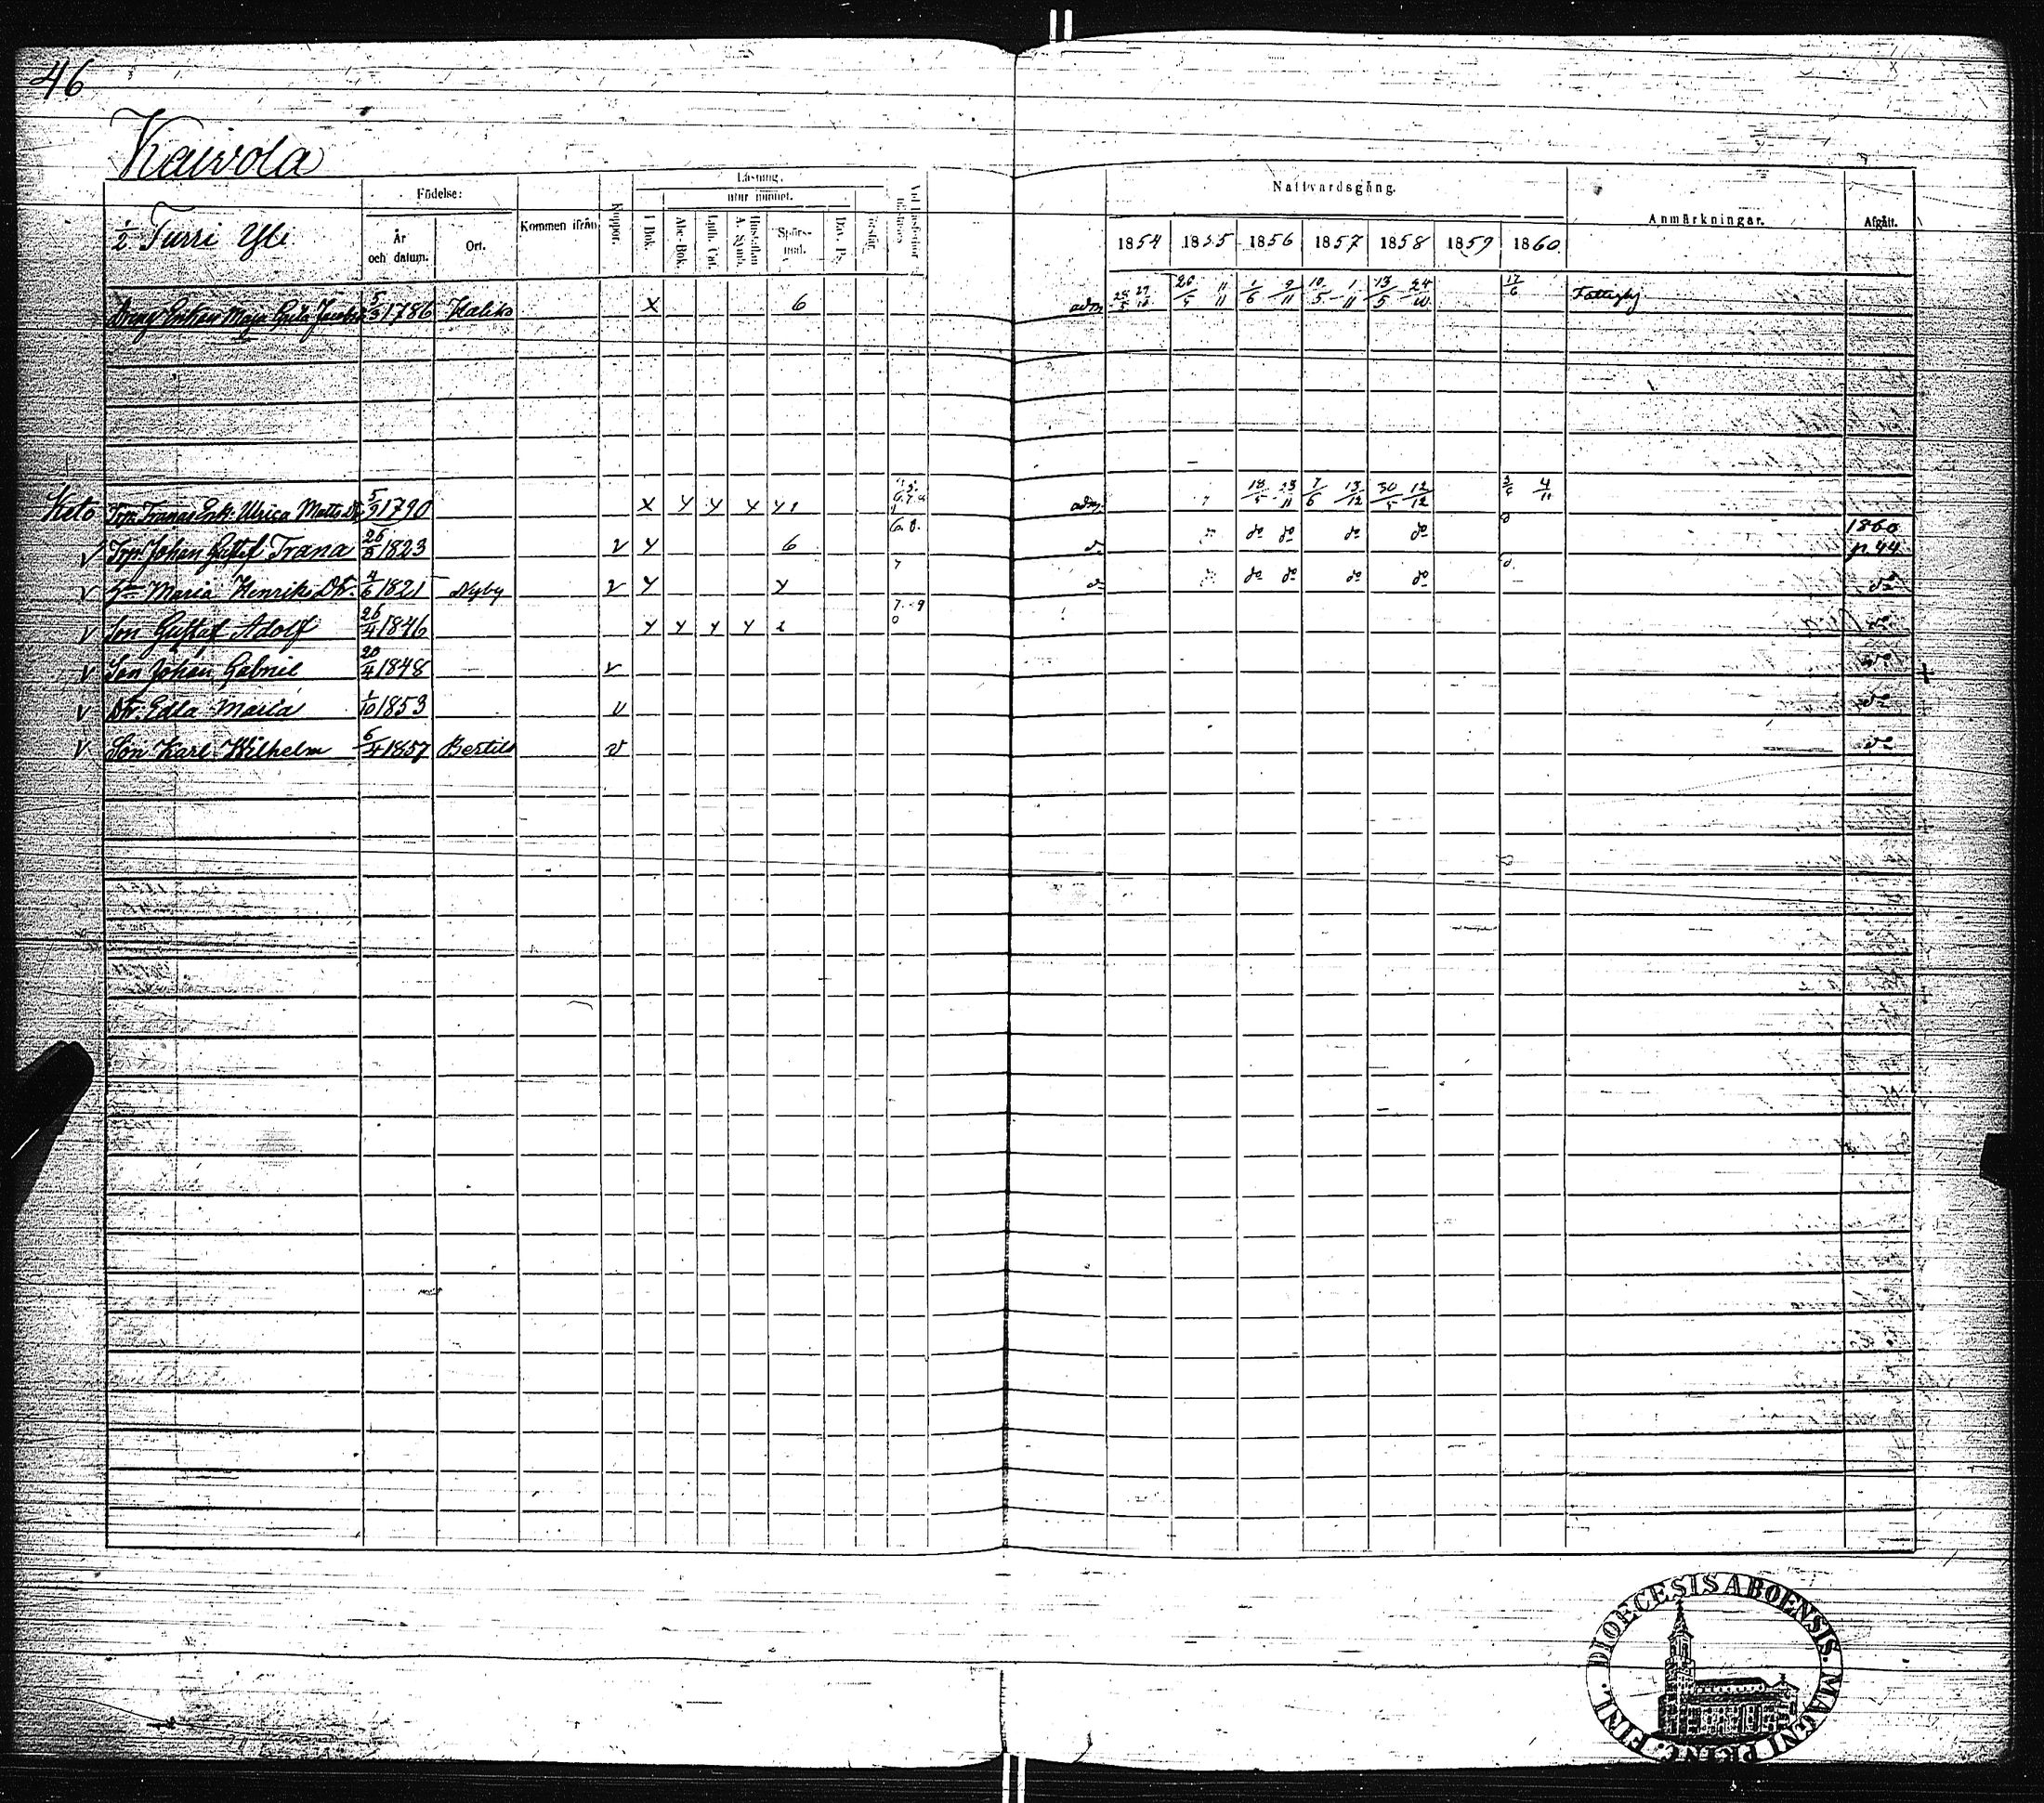 46
Kaivola
½ Turri Yli
Födelse:
År och datum.
Ort.
Kommen ifrån
Koppor.
Läsning.
I Bok.
utur minnet.
Abc-Bok.
Luth. Cat.
Hustaflan A. Symb.
Spörs-mål.
Dav. Ps.
Nattvardsgång.
1854 1855 1856 1857 1858 1859 1860
Anmärkningar.
Afgått.
Dräng Enkan Maja Greta Jacobs 5/3 1786 Haliko X 6 adm 26/5 11/11 1/6 9/11 10/5 1/11 13/5 24/10 17/6
Keto Trp. Tranas Enk. Ulrica Matts Dr 5/9 1790 X Y Y Y Y 1 adm 18/5 23/11 7/6 13/12 30/5 12/12 4/11
v Trp. Johan Gustaf Trana 26/5 1823 v Y 6 do do do do 1860 p. 44
v Hu Maria Henriks Dr. 4/6 1821 Nyby v Y Y do do do do do
v Son Gustaf Adolf 26/4 1846 Y Y Y Y 2 do
v Son Johan Gabriel 20/4 1848 v do
v Dr. Edla Maria 1/10 1853 v do
v Son Karl Wilhelm 6/4 1857 Bertils v do
DIOECESIS ABOENSIS. MAGNI PRINC. FINL.